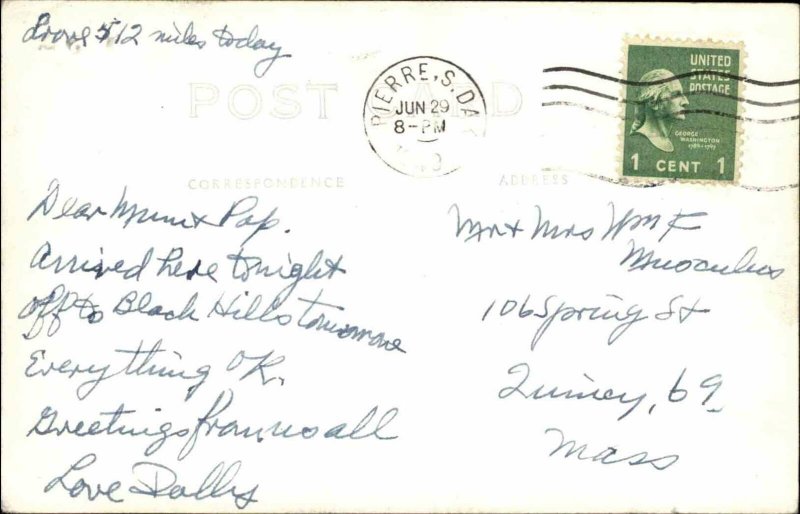 Drove 512 miles today
POST CARD
PIERRE, S. DAK
JUN 29
8-PM
UNITED
STATES
POSTAGE
GEORGE
WASHINGTON
1789-1797
1 CENT 1
CORRESPONDENCE
ADDRESS
Dear Mum + Pop.
Arrived here tonight
off to Black Hills tomorrow
Everything OK.
Greetings from us all
Love Dolly
Mr + Mrs Wm F
106 Spring St
Quincy, 69
Mass